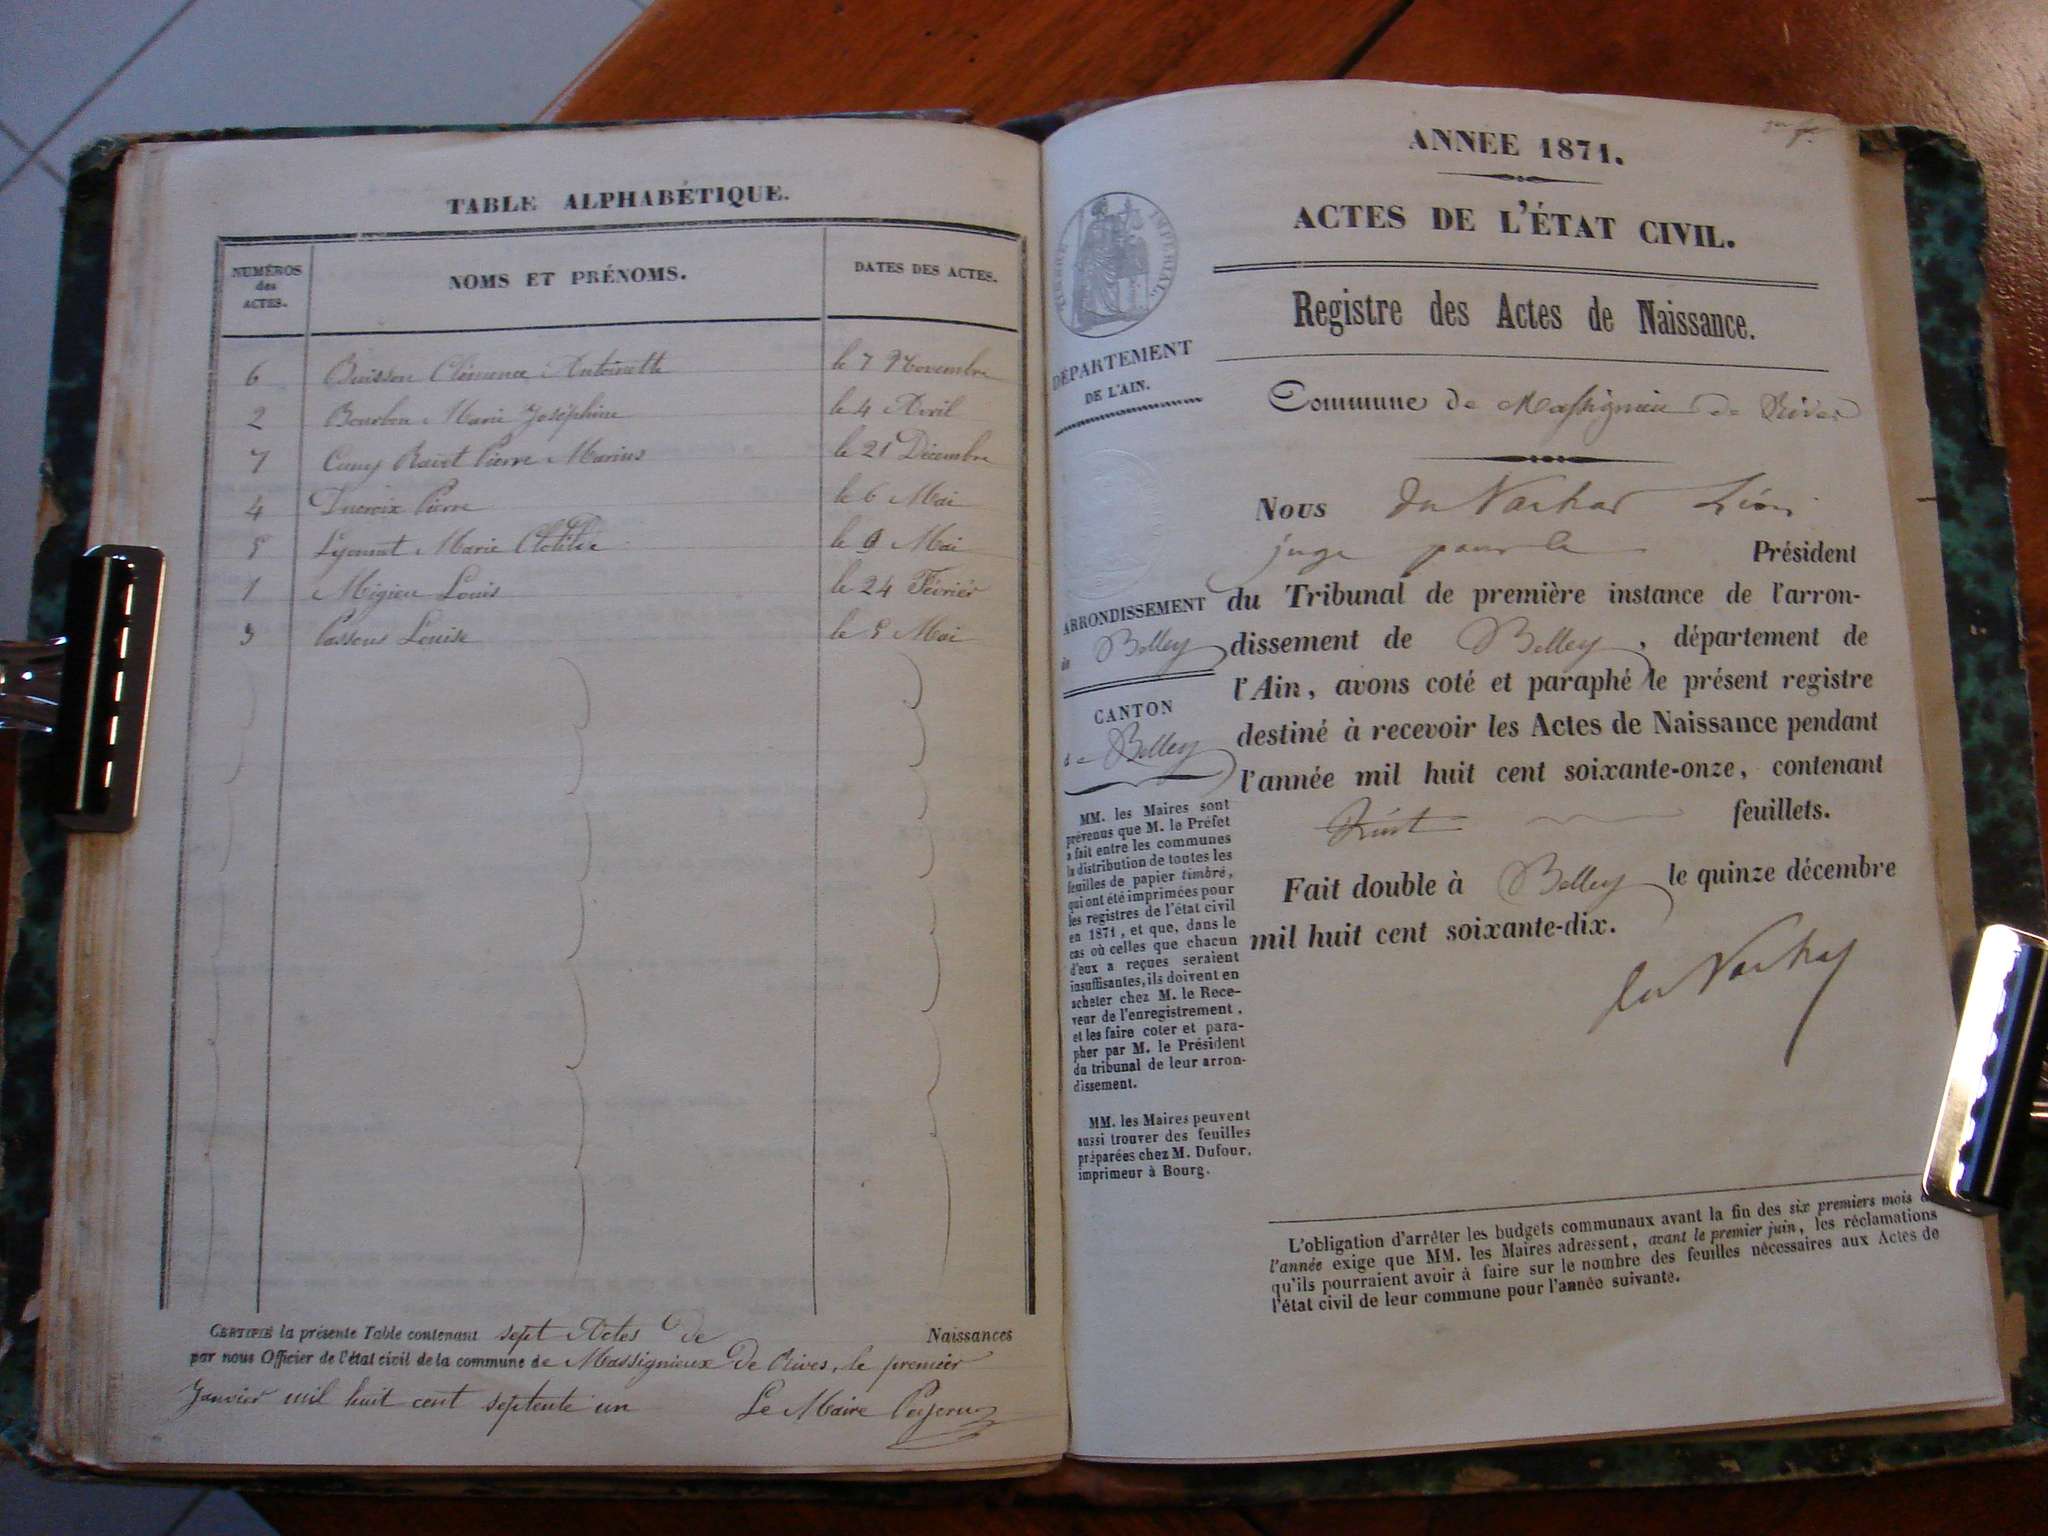 TABLE ALPHABÉTIQUE.
NUMÉROS des ACTES. NOMS ET PRÉNOMS. DATES DES ACTES.
6 Buisson Clémence Antoinette le 7 Novembre
2 Bourbon Marie Joséphine le 4 Avril
7 Pierre Marius le 21 Décembre
4 Ducroix Pierre le 6 Mai
5 Marie Clotilde le 9 Mai
1 Migieu Louis le 24 Février
3 Louise le 5 Mai
CERTIFIÉ la présente Table contenant sept Actes de Naissances
par nous Officier de l'état civil de la commune de Massignieux de Rives, le premier
Janvier mil huit cent septente un Le Maire
ANNÉE 1871.
ACTES DE L'ÉTAT CIVIL.
Registre des Actes de Naissance.
TIMBRE IMPÉRIAL
DÉPARTEMENT
DE L'AIN.
Commune de Massignieu de Rives
Nous Léon
juge pour le Président
du Tribunal de première instance de l'arron-
dissement de Belley, département de
l'Ain, avons coté et paraphé le présent registre
destiné à recevoir les Actes de Naissance pendant
l'année mil huit cent soixante-onze, contenant
feuillets.
Fait double à Belley le quinze décembre
mil huit cent soixante-dix.
ARRONDISSEMENT
de Belley
CANTON
de Belley
MM. les Maires sont
prévenus que M. le Préfet
a fait entre les communes
la distribution de toutes les
feuilles de papier timbré,
qui ont été imprimées pour
les registres de l'état civil
en 1871, et que, dans le
cas où celles que chacun
d'eux a reçues seraient
insuffisantes, ils doivent en
acheter chez M. le Rece-
veur de l'enregistrement,
et les faire coter et para-
pher par M. le Président
du tribunal de leur arron-
dissement.
MM. les Maires peuvent
aussi trouver des feuilles
préparées chez M. Dufour,
imprimeur à Bourg.
L'obligation d'arrêter les budgets communaux avant la fin des six premiers mois de
l'année exige que MM. les Maires adressent, avant le premier juin, les réclamations
qu'ils pourraient avoir à faire sur le nombre des feuilles nécessaires aux Actes de
l'état civil de leur commune pour l'année suivante.